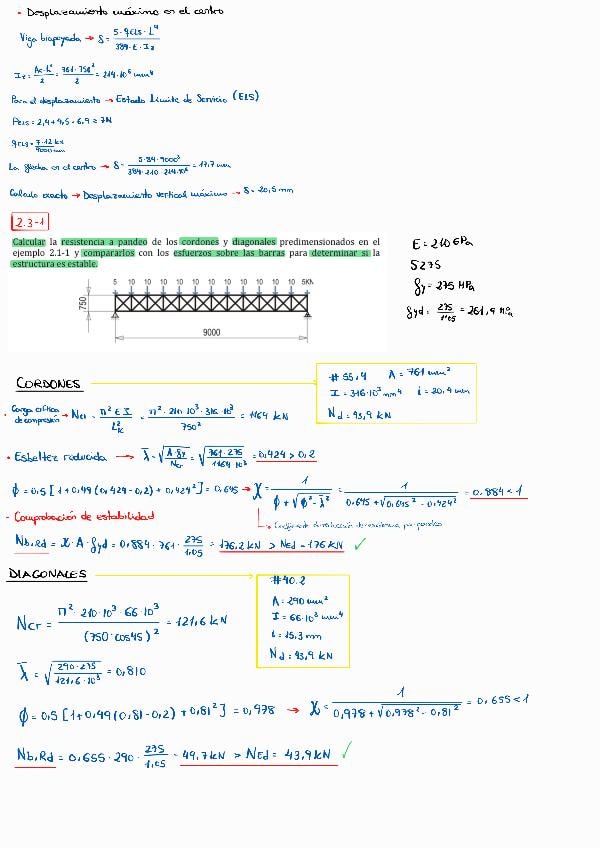 • Desplazamiento máximo en el centro
Viga biapoyada → δ = 5·qELS·L⁴ / 384·E·Iz
Iz = Ac·h² / 2 = 761·750² / 2 = 214·10⁶ mm⁴
Para el desplazamiento → Estado Límite de Servicio (ELS)
PELS = 2,4 + 4,5 = 6,9 ≈ 7N
qELS = 7·12 kN / 9000 mm
La flecha en el centro → δ = 5·84·9000³ / 384·210·214·10⁶ = 17,7 mm
Calculo exacto → Desplazamiento vertical máximo → δ = 20,5 mm
2.3-1
Calcular la resistencia a pandeo de los cordones y diagonales predimensionados en el
ejemplo 2.1-1 y compararlos con los esfuerzos sobre las barras para determinar si la
estructura es estable.
E = 210 GPa
S275
fy = 275 MPa
fyd = 275 / 1.05 = 261,9 MPa
5 10 10 10 10 10 10 10 10 10 10 10 5kN
750
9000
CORDONES
# 55,4 A = 761 mm²
I = 316·10³ mm⁴ i = 20,4 mm
Nd = 43,9 kN
• Carga crítica de compresión → Ncr = π² E I / L²k = π²·210·10³·316·10³ / 750² = 1164 kN
• Esbeltez reducida → λ̄ = √(A·fy / Ncr) = √(761·275 / 1164·10³) = 0,424 > 0,2
ϕ = 0,5 [1 + 0,49 (0,424 - 0,2) + 0,424²] = 0,645 → χ = 1 / ϕ + √(ϕ² - λ̄²) = 1 / 0,645 + √(0,645² - 0,424²) = 0.884 < 1
↳ Coeficiente de reducción de resistencia por pandeo
- Comprobación de estabilidad
Nb,Rd = χ·A·fyd = 0,884·761·275 / 1,05 = 176,2 kN > NEd = 176 kN ✓
DIAGONALES
#40.2
A = 290 mm²
I = 66·10³ mm⁴
i = 15,3 mm
Nd = 43,9 kN
Ncr = π²·210·10³·66·10³ / (750·cos45)² = 121,6 kN
λ̄ = √(290·275 / 121,6·10³) = 0,810
ϕ = 0,5 [1 + 0,49 (0,81 - 0,2) + 0,81²] = 0,978 → χ = 1 / 0,978 + √(0,978² - 0,81²) = 0,655 < 1
Nb,Rd = 0,655·290·275 / 1,05 = 49,7 kN > NEd = 43,9 kN ✓